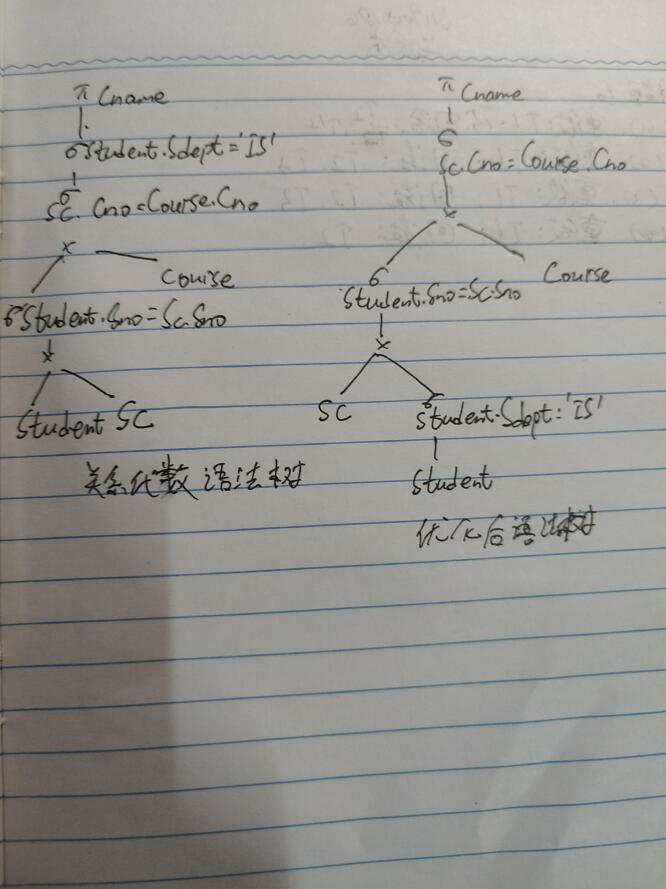 π Cname
σ Student.Sdept='IS'
σ
SC.Cno=Course.Cno
×
Course
σ Student.Sno=Sc.Sno
×
Student SC
关系代数语法树
π Cname
σ
Sc.Cno=Course.Cno
×
σ
Student.Sno=Sc.Sno
Course
×
SC
σ
Student.Sdept='IS'
Student
优化后语法树